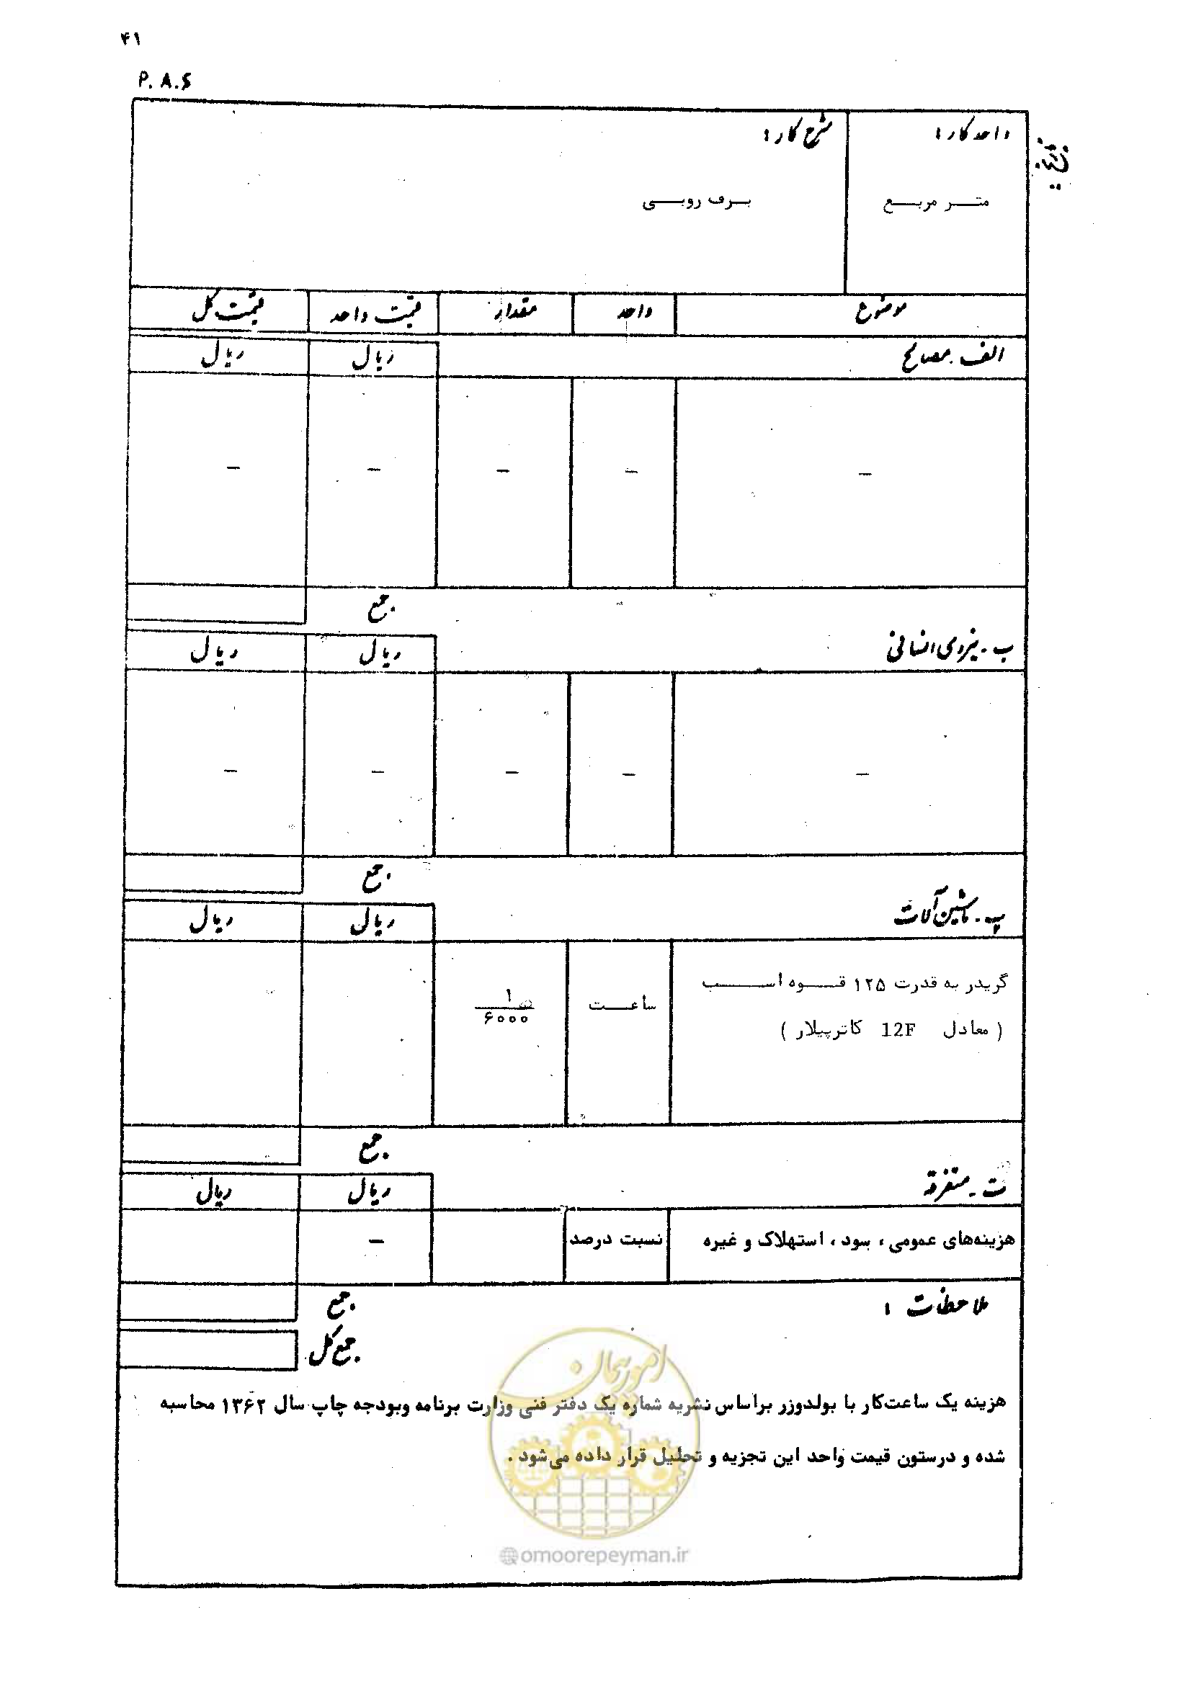 ۴۱
P. A. 6
واحد کار :
شرح کار :
تاریخ :
متر مربع
برف روبی
موضوع واحد مقدار قیمت واحد قیمت کل
الف ـ مصالح ریال ریال
— — — — —
جمع
ب ـ نیروی انسانی ریال ریال
— — — — —
جمع
پ ـ ماشین آلات ریال ریال
گریدر به قدرت ۱۲۵ قوه اسب ساعت ۱/۶۰۰۰
( معادل 12F کاترپیلار )
جمع
ت ـ متفرقه ریال ریال
هزینه‌های عمومی ، سود ، استهلاک و غیره نسبت درصد —
ملاحظات : جمع
جمع کل
هزینه یک ساعت‌کار با بولدوزر براساس نشریه شماره یک دفتر فنی وزارت برنامه وبودجه چاپ سال ۱۳۶۲ محاسبه
شده و درستون قیمت واحد این تجزیه و تحلیل قرار داده می‌شود .
امور پیمان
@omoorepeyman.ir